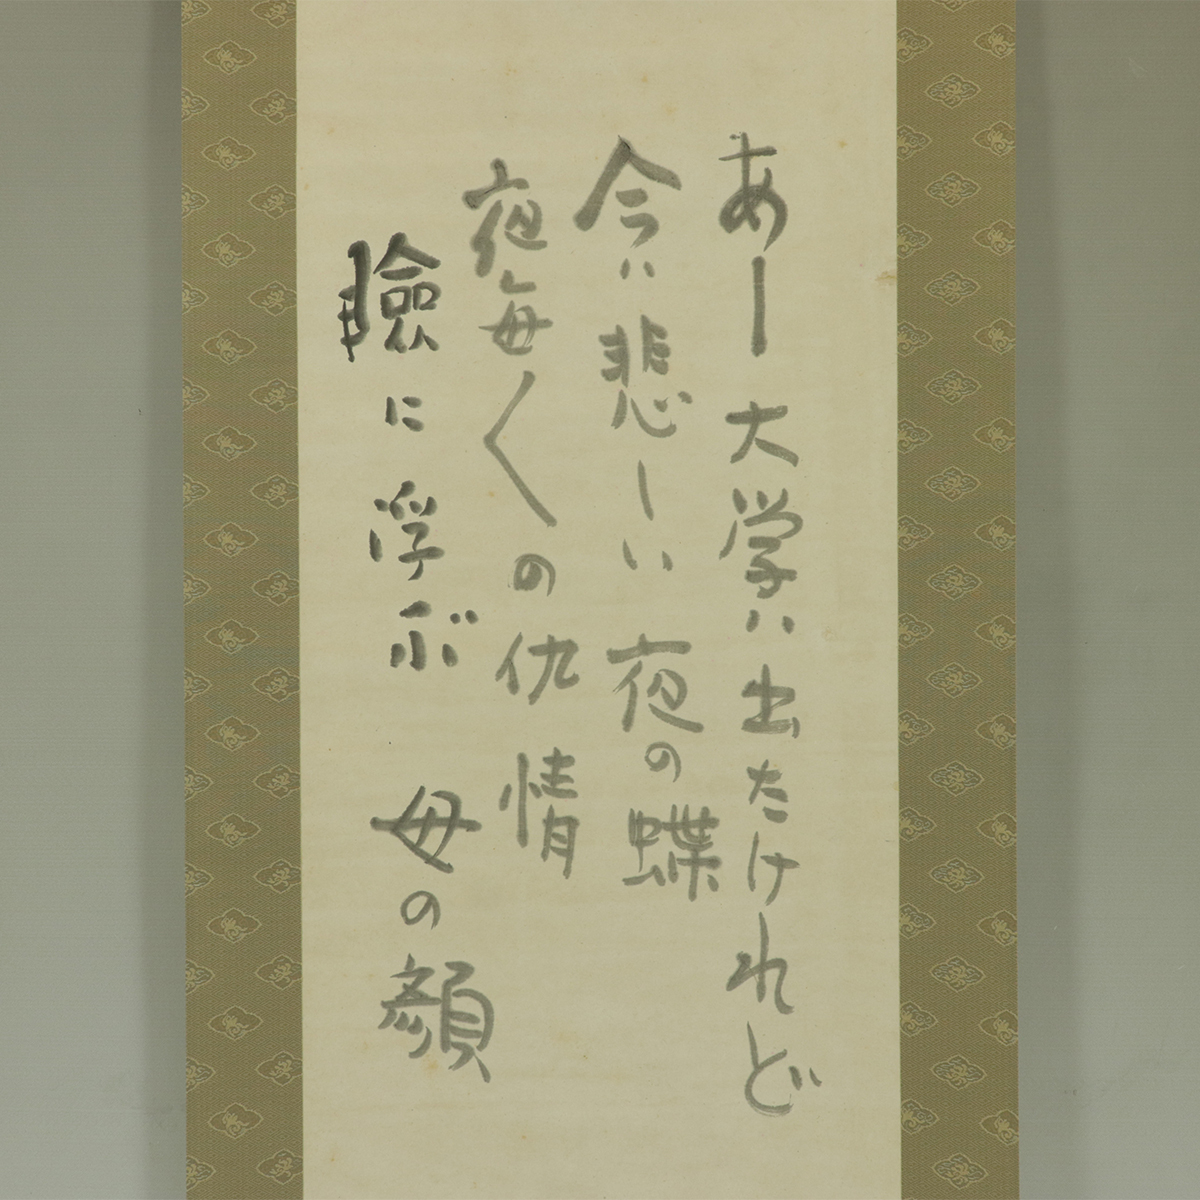 あー大学ハ出たけれど
今ハ悲しい夜の蝶
夜毎〱の仇情
瞼に浮ぶ 母の顔